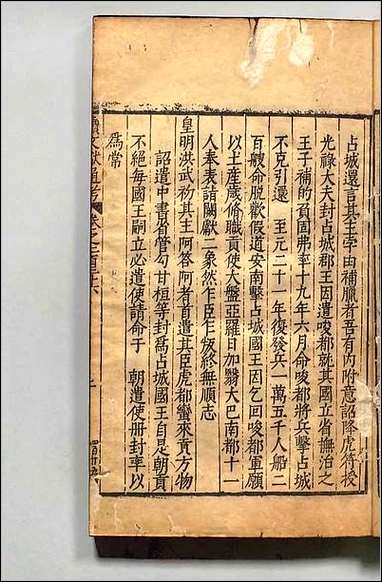 占城還言其主孛由補臘者吾有内附意詔降虎符授
光祿大夫封占城郡王因遣唆都就其國立省撫治之
王子補的負固弗率十九年六月命唆都將兵擊占城
不克引還　至元二十一年復發兵一萬五千人船二
百艘命脫歡假道安南擊占城國王因乞回唆都軍願
以土産歲脩職貢使大盤亞羅日加翳大巴南都十一
人奉表詣闕獻二象然乍臣乍叛終無順志
皇明洪武初其主阿答阿者首遣其臣虎都蠻來貢方物
詔遣中書省管勾甘桓等封爲占城國王自是朝貢
不絕每國王嗣立必遣使請命于　朝遣使册封率以
爲常
續文獻通考　卷之二百三十六